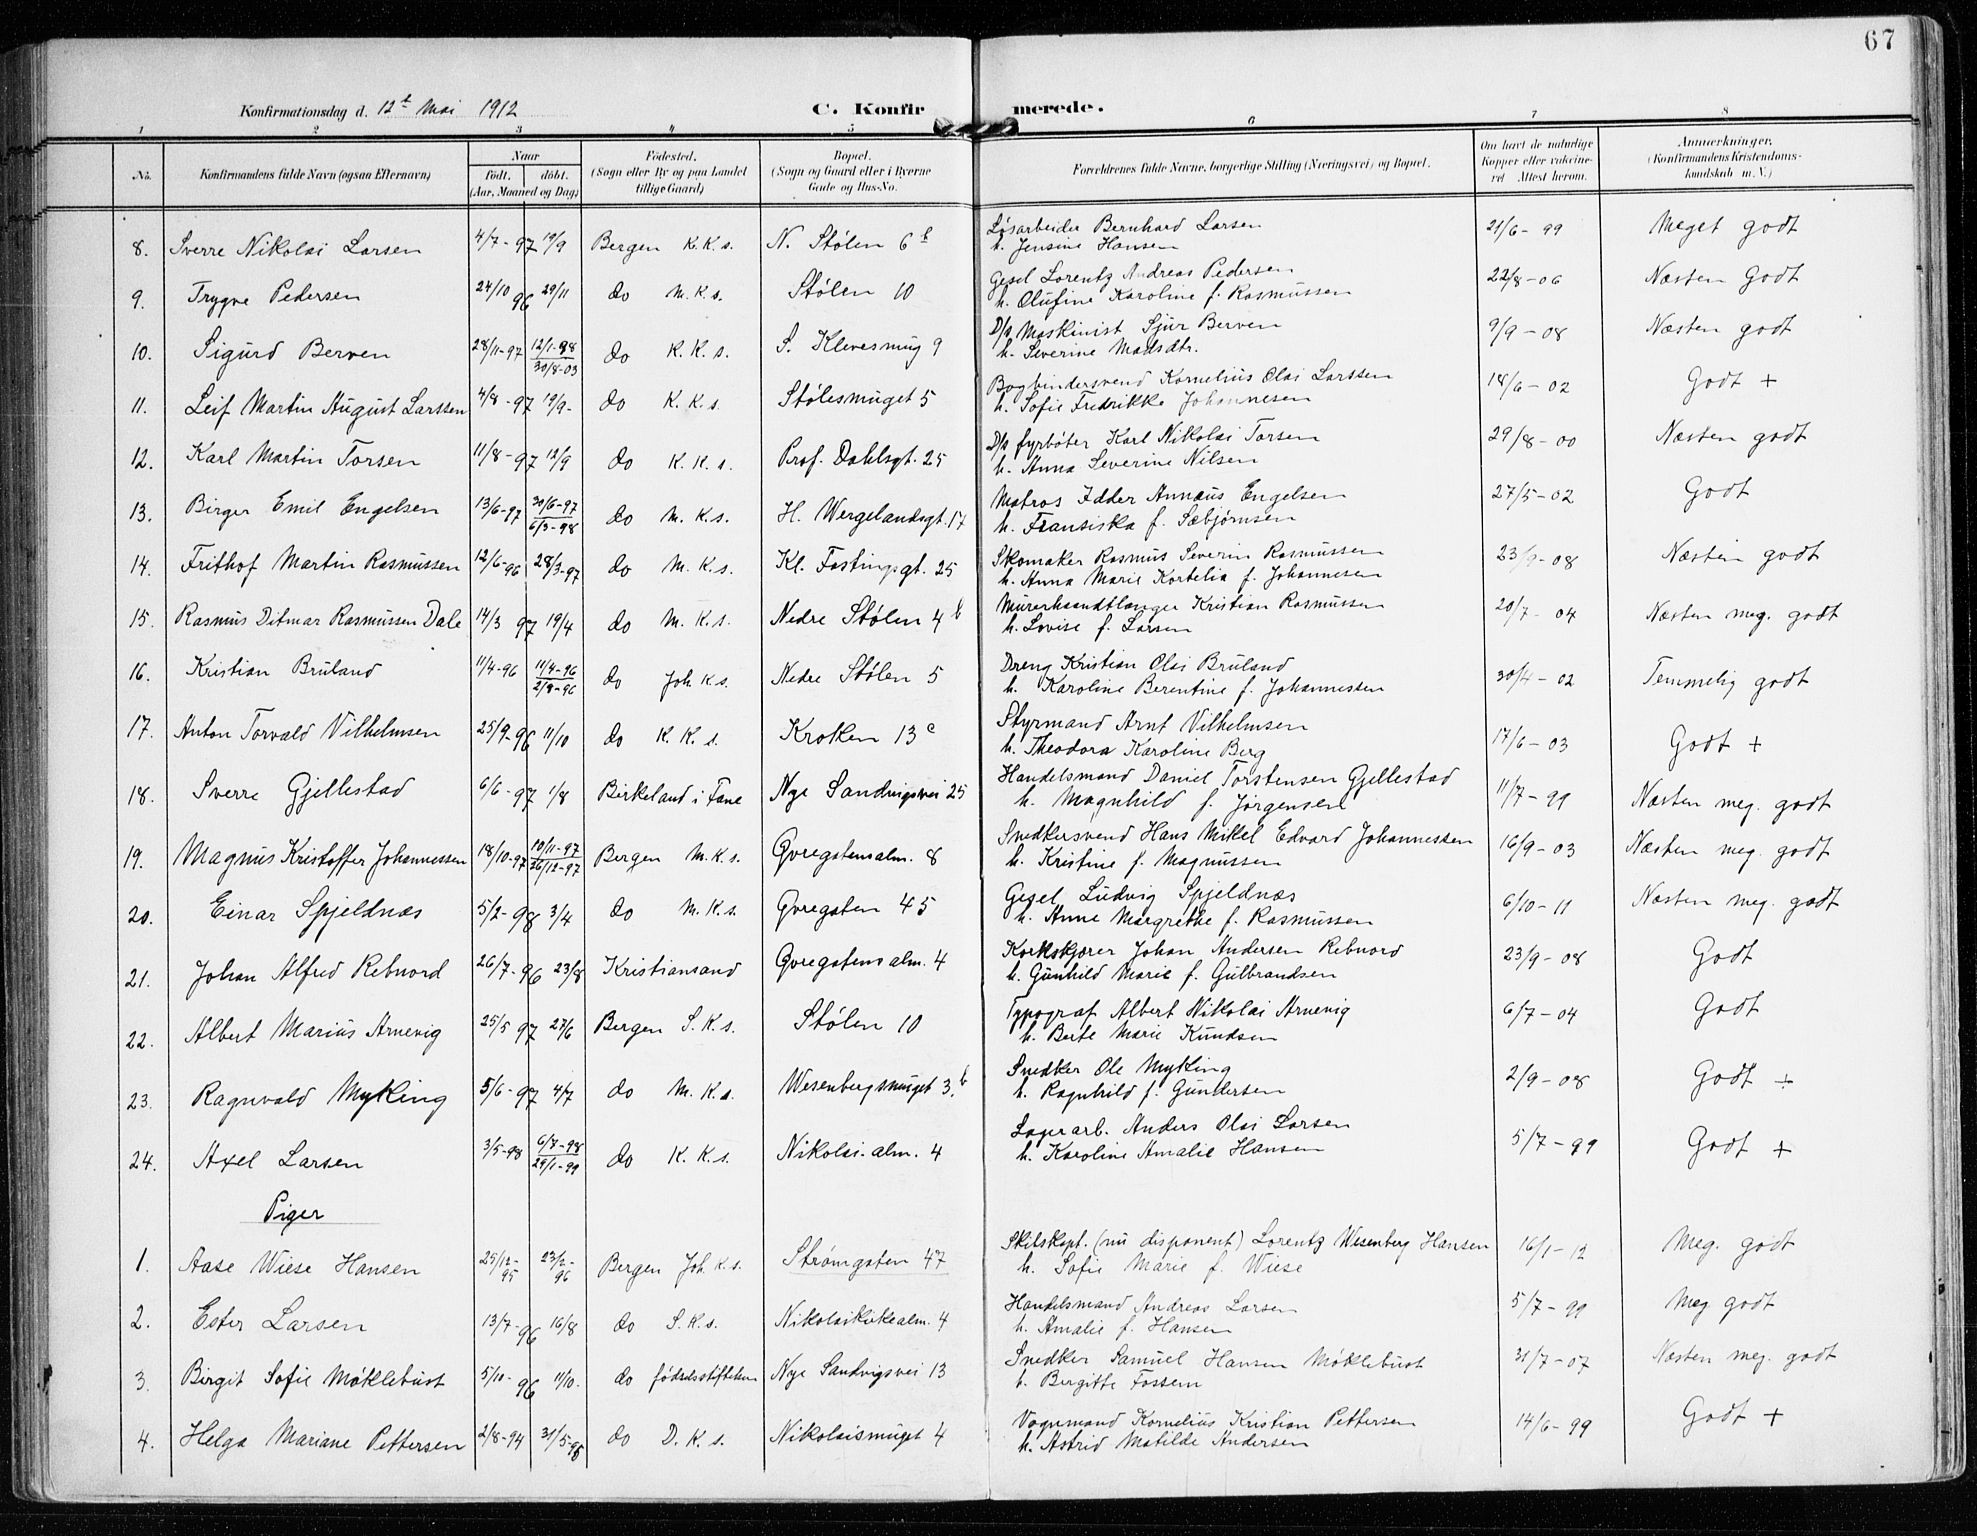 67
Konfirmationsdag d. 12t Mai 1912 C. Konfirmerede.
1 2 3 4 5 6 7 8
No. Konfirmandens fulde Navn (ogsaa Efternavn) Naar født. døbt. (Aar, Maaned og Dag) Födested. (Sogn eller By og paa Landet tillige Gaard) Bopæl. (Sogn og Gaard eller i Byerne Gade og Hus-No. Forældrenes fulde Navne, borgerlige Stilling (Næringsvei) og Bopæl. Om havt de naturlige Kopper eller vakcineret Attest herom. Anmærkninger. (Konfirmandens Kristendomskundskab m. V.)
8. Sverre Nikolai Larsen 4/7-97 19/9 Bergen K.K.s. N. Stølen 6b Løsarbeider Bernhard Larsen 21/6-99 Meget godt
h. Jensine Hansen
9. Trygve Pedersen 24/10 96 29/11 do M.K.s. Stølen 10 Gesel Lorentz Andreas Pedersen 22/8-06 Næsten Godt
h. Olufine Karoline f. Rasmussen
10. Sigurd Berven 28/11-97 12/1-98 30/8-03 do K.K.s. S. Klevesmug 9 D/q Maskinist Sjur Berven 9/9-08 Næsten godt
h. Severine Madsdtr.
11. Leif Martin August Larssen 4/8-97 19/9- do K.K.s. Stølesmuget 5 Bogbindersvend Kornelius Olai Larssen 18/6-02 Godt +
h. Sofie Fredrikke Johannesen
12. Karl Martin Torsen 11/8-97 12/9 do K.K.s. Prof. Dahlsgt. 25 D/q fyrbøter Karl Nikolai Torsen 29/8-00 Næsten godt
h. Anna Severine Nilsen
13. Birger Emil Engelsen 13/6-97 30/6-97 6/3-98 do M.K.s. H. Wergelandsgt. 17 Matros Edder Annæus Engelsen 27/5-02 Godt
h. Fransiska f. Sæbjørnsen
14. Frithof Martin Rasmussen 12/6-96 28/3-97 do M.K.s. Kl. Fastingsgt. 25 Skomaker Rasmus Severin Rasmussen 23/9-08 Næsten godt
h. Anna Marie Kortelia f. Johannesen
15. Rasmus Ditmar Rasmussen Dale 14/3 97 19/4 do M.K.s. Nedre Stølen 4b Murerhaandtlanger Kristian Rasmussen 20/7-04 Næsten meg. godt
h. Lovise f. Larsen
16. Kristian Bruland 11/4-96 11/4-96 2/8-96 do Joh.K.s. Nedre Stølen 5 Dreng Kristian Olai Bruland 30/4-02 Temmelig godt
h. Karoline Berentine f. Johannessen
17. Anton Torvald Vilhelmsen 25/9-96 11/10 do K.K.s. Kroken 13c Styrmand Arnt Vilhelmsen 17/6-03 Godt +
h. Theodora Karoline Berg
18. Sverre Gjellestad 6/6-97 1/8 Birkeland i Fane Nye Sandvigsvei 25 Handelsmand Daniel Torstensen Gjellestad 11/7-99 Næsten meg. godt
h. Magnhild f. Jørgensen
19. Magnus Kristoffer Johannessen 18/10-97 10/11-97 26/12-97 Bergen M.K.s. Øvregatens alm. 8 Snedkersvend Hans Mikkel Edvard Johannessen 16/9-03 Næsten meg. godt
h. Kristine f. Magnussen
20. Einar Spjeldnæs 5/2-98 3/4 do M.K.s. Øvregaten 45 Gesel Ludvig Spjeldnæs 6/10-11 Næsten meg. godt
h. Anne Margrethe f. Rasmussen
21. Johan Alfred Rebnord 26/7-96 23/8 Kristiansand Øvregatens alm. 4 Korkskjærer Johan Andersen Rebnord 23/9-08 Godt
h. Gunhild Marie f. Gulbrandsen
22. Albert Marius Arnevig 25/5 97 27/6 Bergen S.K.s. Stølen 10 Typograf Albert Nikolai Arnevig 6/7-04 Godt
h. Berte Marie Knudsen
23. Ragnvald Myking 5/6-97 4/7 do M.K.s. Wesenbergsmuget 3b Snedker Ole Myking 2/9-08 Godt +
h. Ragnhild f. Gundersen
24. Axel Larsen 3/5-98 6/7-98 29/1-99 do K.K.s. Nikolai.alm. 4 Lagerarb. Anders Olai Larsen 5/7-99 Godt +
h. Karoline Amalie Hansen
Piger
1. Aase Wiese Hansen 25/12-95 23/2-96 Bergen Joh.K.s. Strømgaten 47 Skibskapt. (nu disponent) Lorentz Wesenberg Hansen 16/1-12 Meg. godt
h. Sofie Marie f. Wiese
2. Ester Larsen 13/7-96 16/8 do S.K.s. Nikolaikirkealm. 4 Handelsmand Andreas Larsen 5/7-99 Meg godt
h. Amalie f. Hansen
3. Birgit Sofie Møklebust 5/10-96 11/10. do fødselsstiftelsen Nye Sandvigsvei 13 Snedker Samuel Hansen Møklebust 31/7-07 Næsten meg. godt
h. Bergitte Fossem
4. Helga Mariane Pettersen 2/8-94 31/5-96 do D.K.s. Nikolaismuget 4 Vognmand Kornelius Kristian Pettersen 14/6-99 Godt +
h. Astrid Matilde Andersen